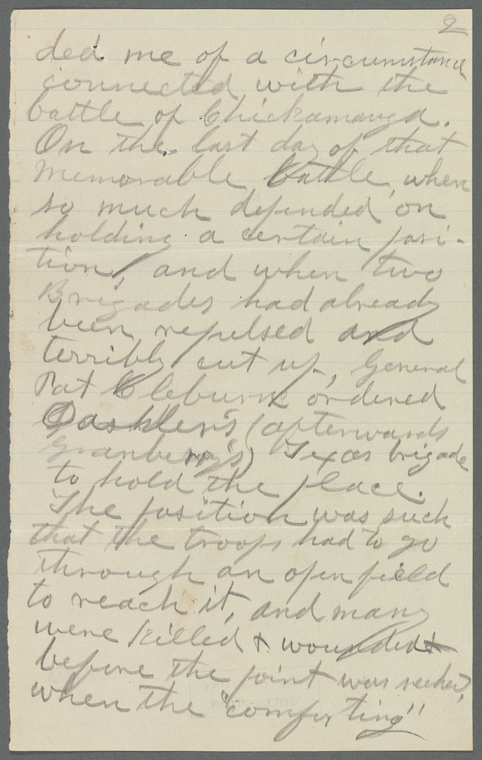 2
ded me of a circumstance
connected with the
battle of Chickamauga.
On the last day of that
memorable battle, when
so much depended on
holding a certain posi-
tion, and when two
Brigades had already
been repulsed and
terribly cut up, General
Pat Cleburne ordered
Dashler's (afterwards
Granberry's) Texas brigade
to hold the place.
The position was such
that the troops had to go
through an open field
to reach it, and many
were killed & wounded
before the point was reached,
when the "comforting"